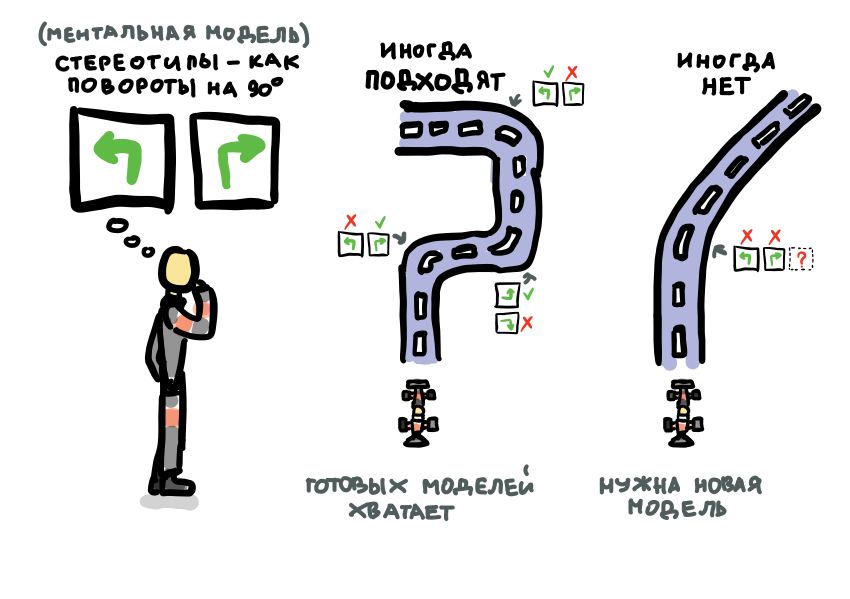 (МЕНТАЛЬНАЯ МОДЕЛЬ)
СТЕРЕОТИПЫ – КАК
ПОВОРОТЫ НА 90°
ИНОГДА
ПОДХОДЯТ
ИНОГДА
НЕТ
?
ГОТОВЫХ МОДЕЛЕЙ
ХВАТАЕТ
НУЖНА НОВАЯ
МОДЕЛЬ